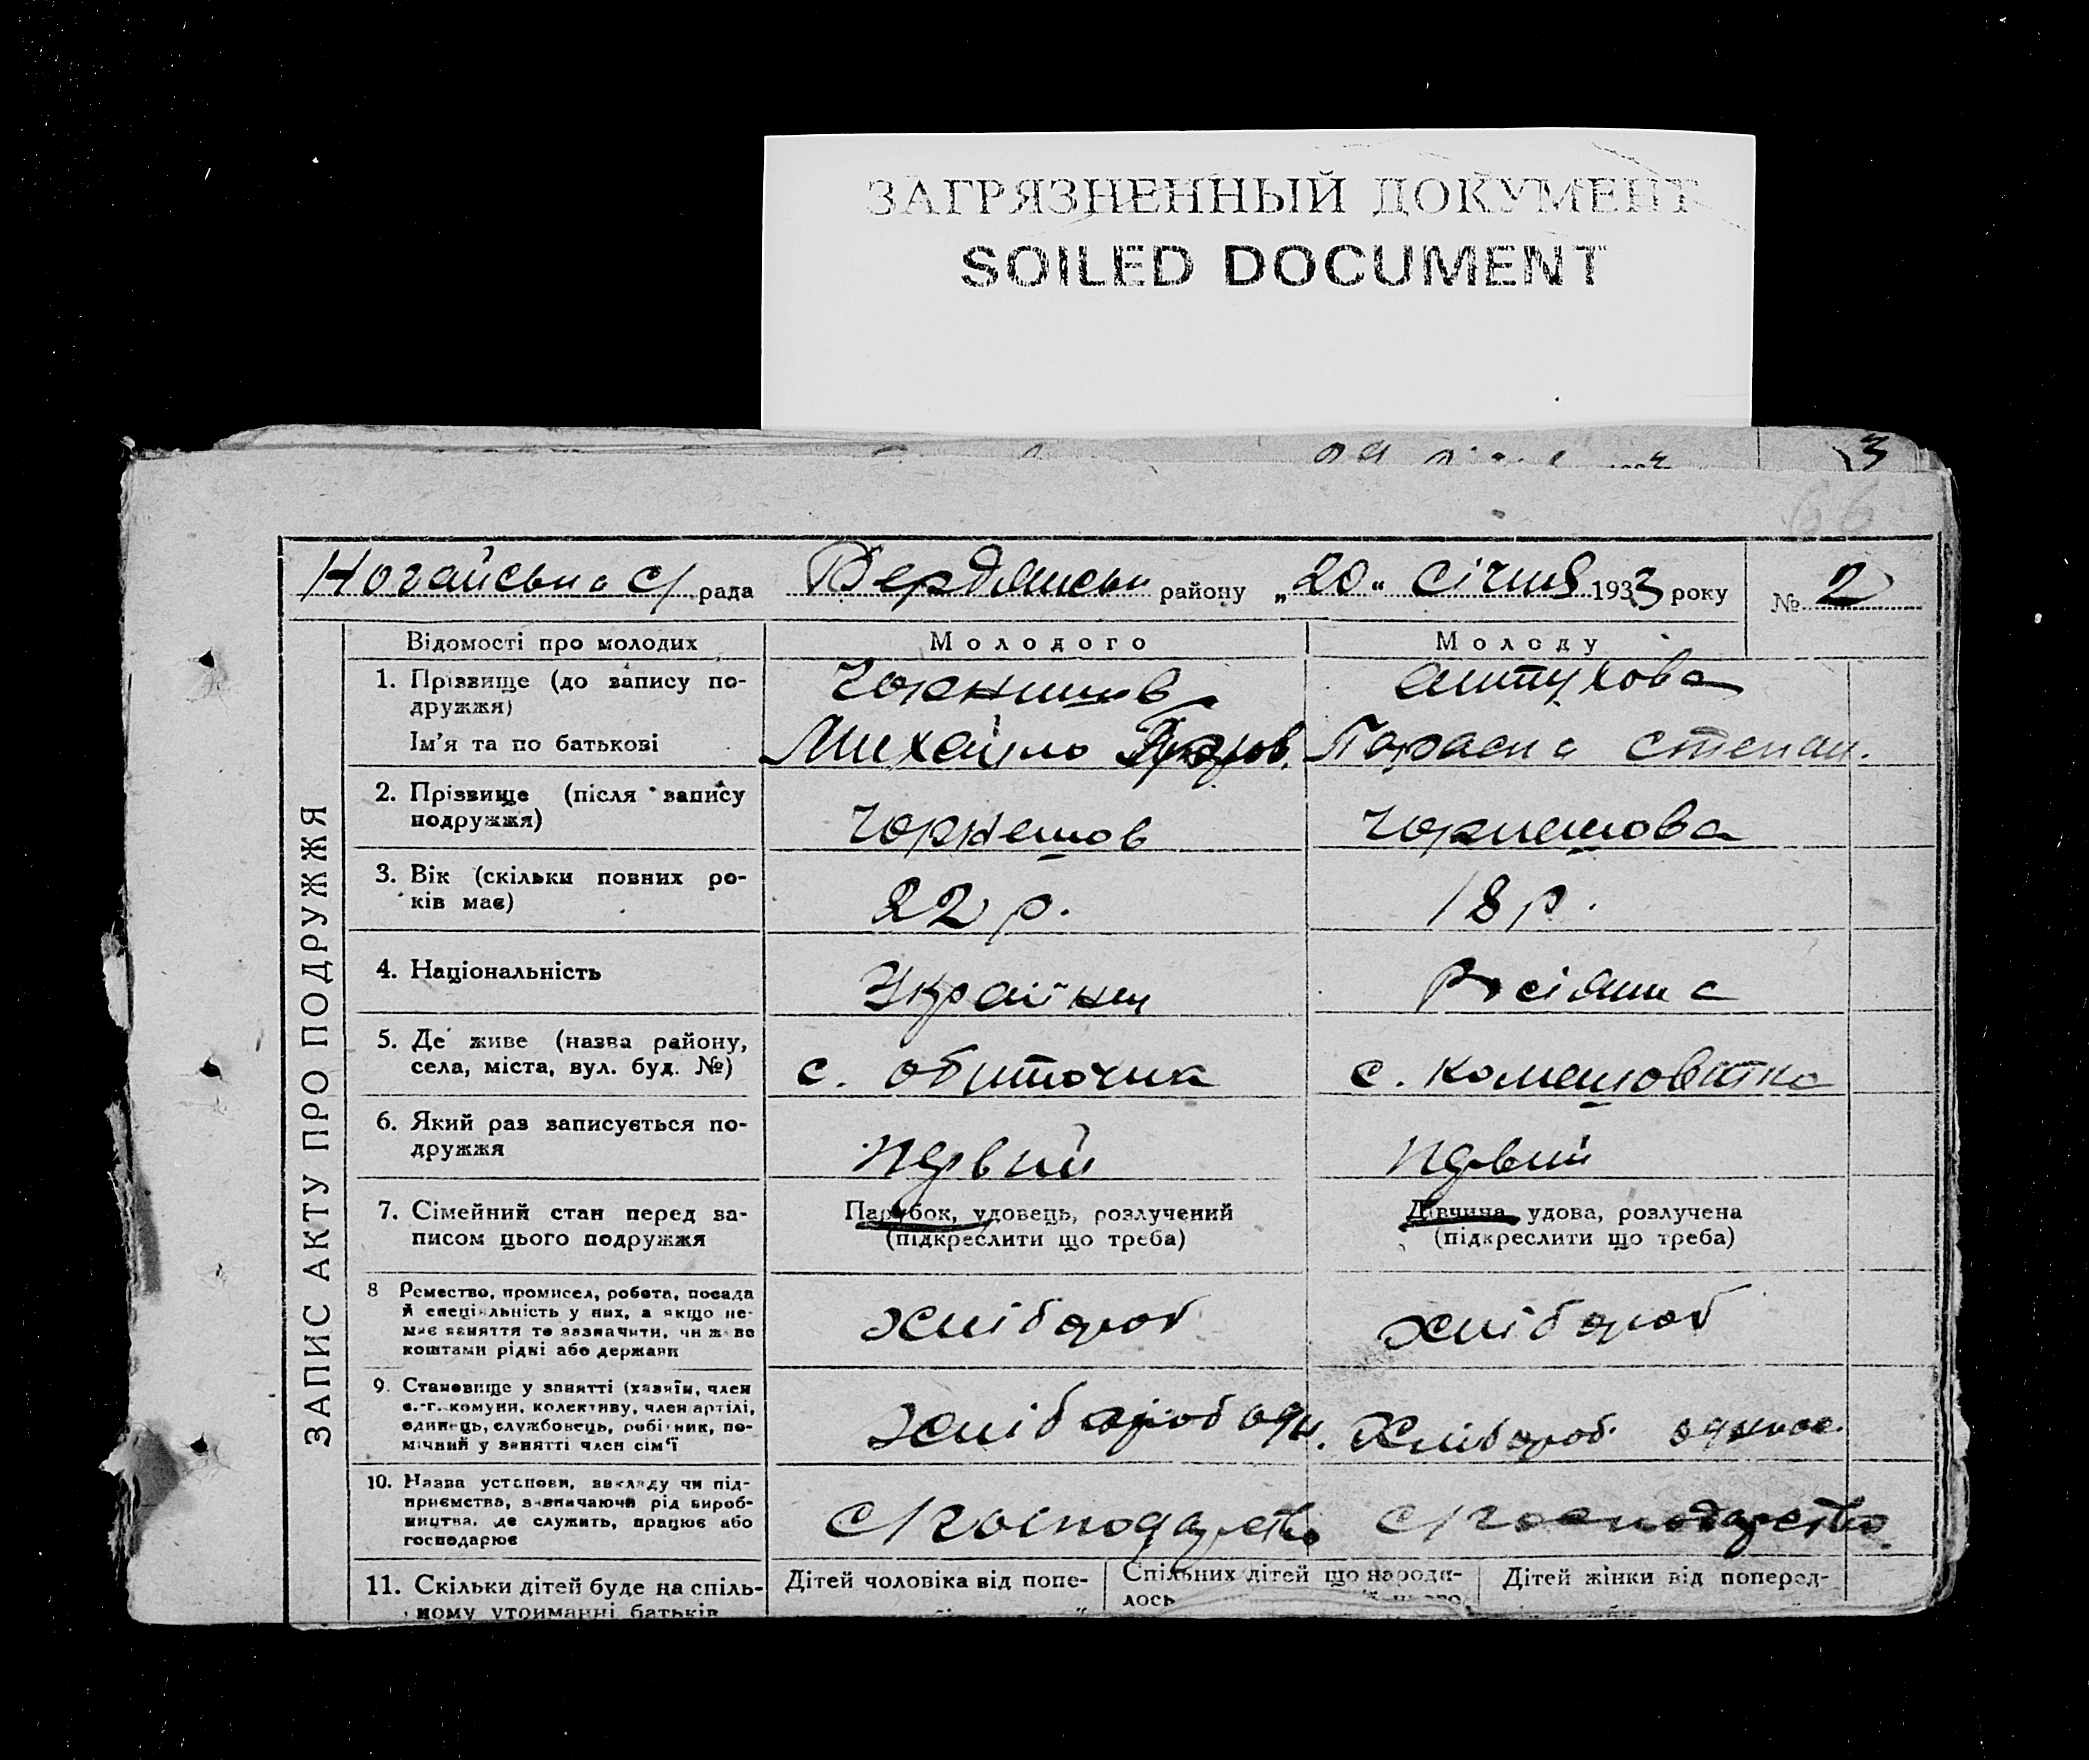 ЗАГРЯЗНЕННЫЙ ДОКУМЕНТ
SOILED DOCUMENT
3
66
Ногайська с/ рада Бердянськ району „20“ січня 1933 року № 2
ЗАПИС АКТУ ПРО ПОДРУЖЖЯ
Відомості про молодих Молодого Молоду
1. Прізвище (до запису по-
дружжя)
Чорнишов Антухова
Ім'я та по батькові Михайло Параска Степан.
2. Прізвище (після запису
подружжя)
Чорнешов Чорнешова
3. Вік (скільки повних ро-
ків має)
22 р. 18 р.
4. Національність Українц Росіянка
5. Де живе (назва району,
села, міста, вул. буд. №)
с. Обиточна с. Комешоватка
6. Який раз записується по-
дружжя
первий первий
7. Сімейний стан перед за-
писом цього подружжя
Парубок, удовець, розлучений
(підкреслити що треба)
Дівчина, удова, розлучена
(підкреслити що треба)
8 Ремество, промисел, робота, посада
й спеціяльність у них, а якщо не-
має заняття то зазначити, чи живе
коштами рідні або держави
хлібороб хлібороб
9. Становище у занятті (хазяїн, член
с.-г. комуни, колективу, член артілі,
одинець, службовець, робітник, по-
мічний у занятті член сім'ї
хлібороб одн. Хлібороб. однос.
10. Назва установи, закладу чи під-
приємства, зазначаючи рід вироб-
ництва, де служить, працює або
господарює
с/господарство с/господарство
11. Скільки дітей буде на спіль-
ному утриманні батьків
Дітей чоловіка від попе-
Спільних дітей що народи-
лось
Дітей жінки від поперед-